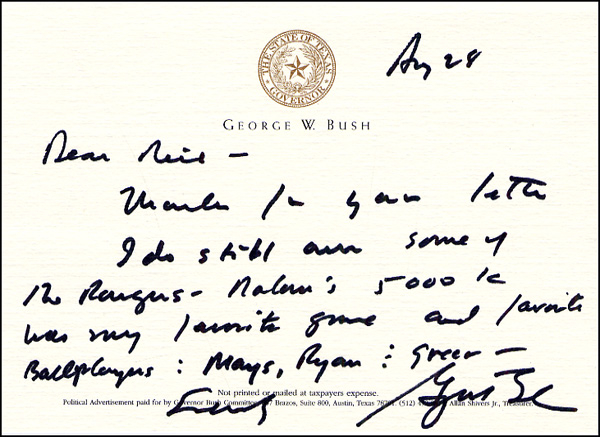 THE STATE OF TEXAS
GOVERNOR
Aug 28
GEORGE W. BUSH
Dear
Thanks for your letter
I do still own some of
the Rangers - Nolan's 5000 K
was my favorite game and favorite
Ballplayers : Mays, Ryan : Greer -
Not printed or mailed at taxpayers expense.
Political Advertisement paid for by Governor Bush Committee, Brazos, Suite 800, Austin, Texas (512) Allan Shivers Jr., Treasurer.